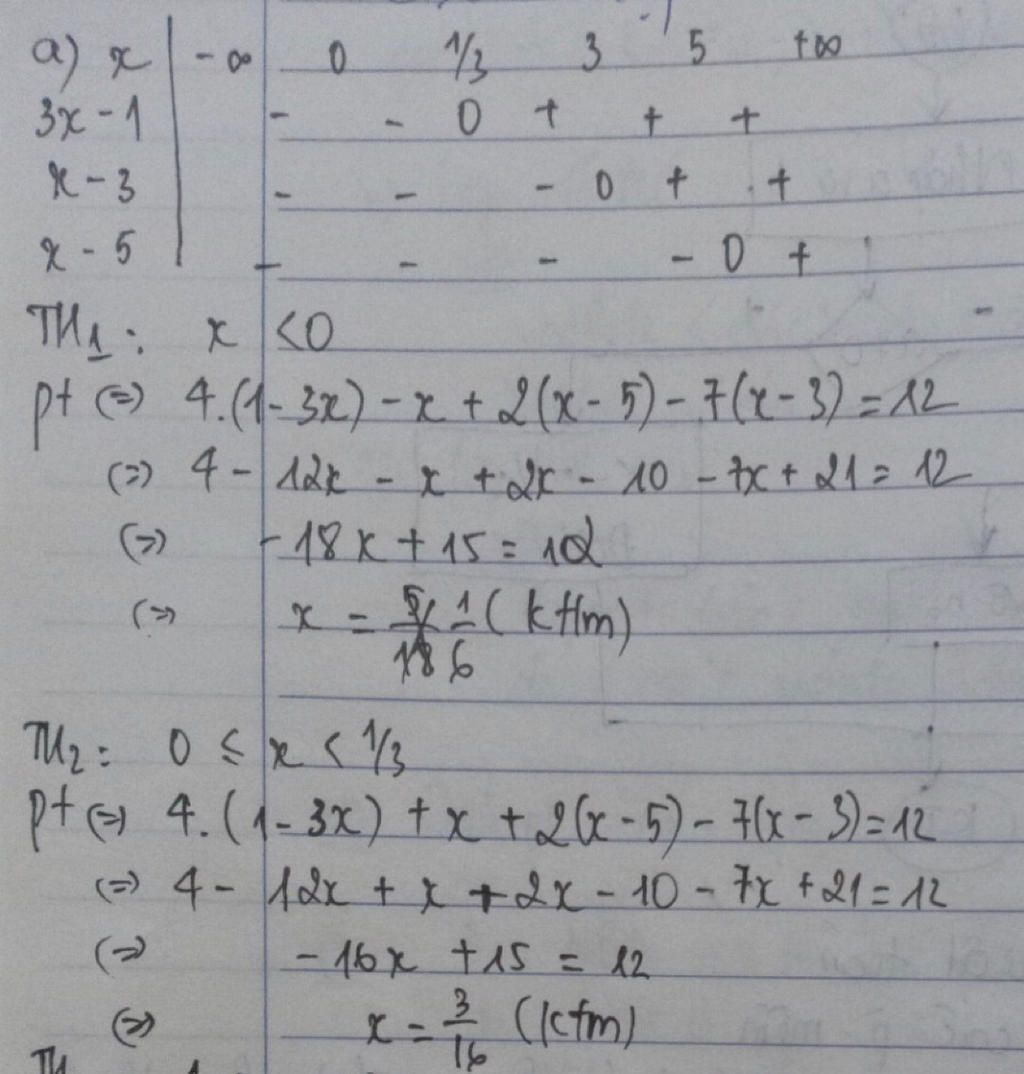 a) x | -∞ 0 1/3 3 5 +∞
3x - 1 | - - 0 + + +
x - 3 | - - - 0 + +
x - 5 | - - - - 0 +
TH1: x < 0
pt (=) 4.(1 - 3x) - x + 2(x - 5) - 7(x - 3) = 12
(=) 4 - 12x - x + 2x - 10 - 7x + 21 = 12
(=) - 18x + 15 = 12
(=) x = 1/6 (ktm)
TH2: 0 ≤ x < 1/3
pt (=) 4.(1 - 3x) + x + 2(x - 5) - 7(x - 3) = 12
(=) 4 - 12x + x + 2x - 10 - 7x + 21 = 12
(=) - 16x + 15 = 12
(=) x = 3/16 (ktm)